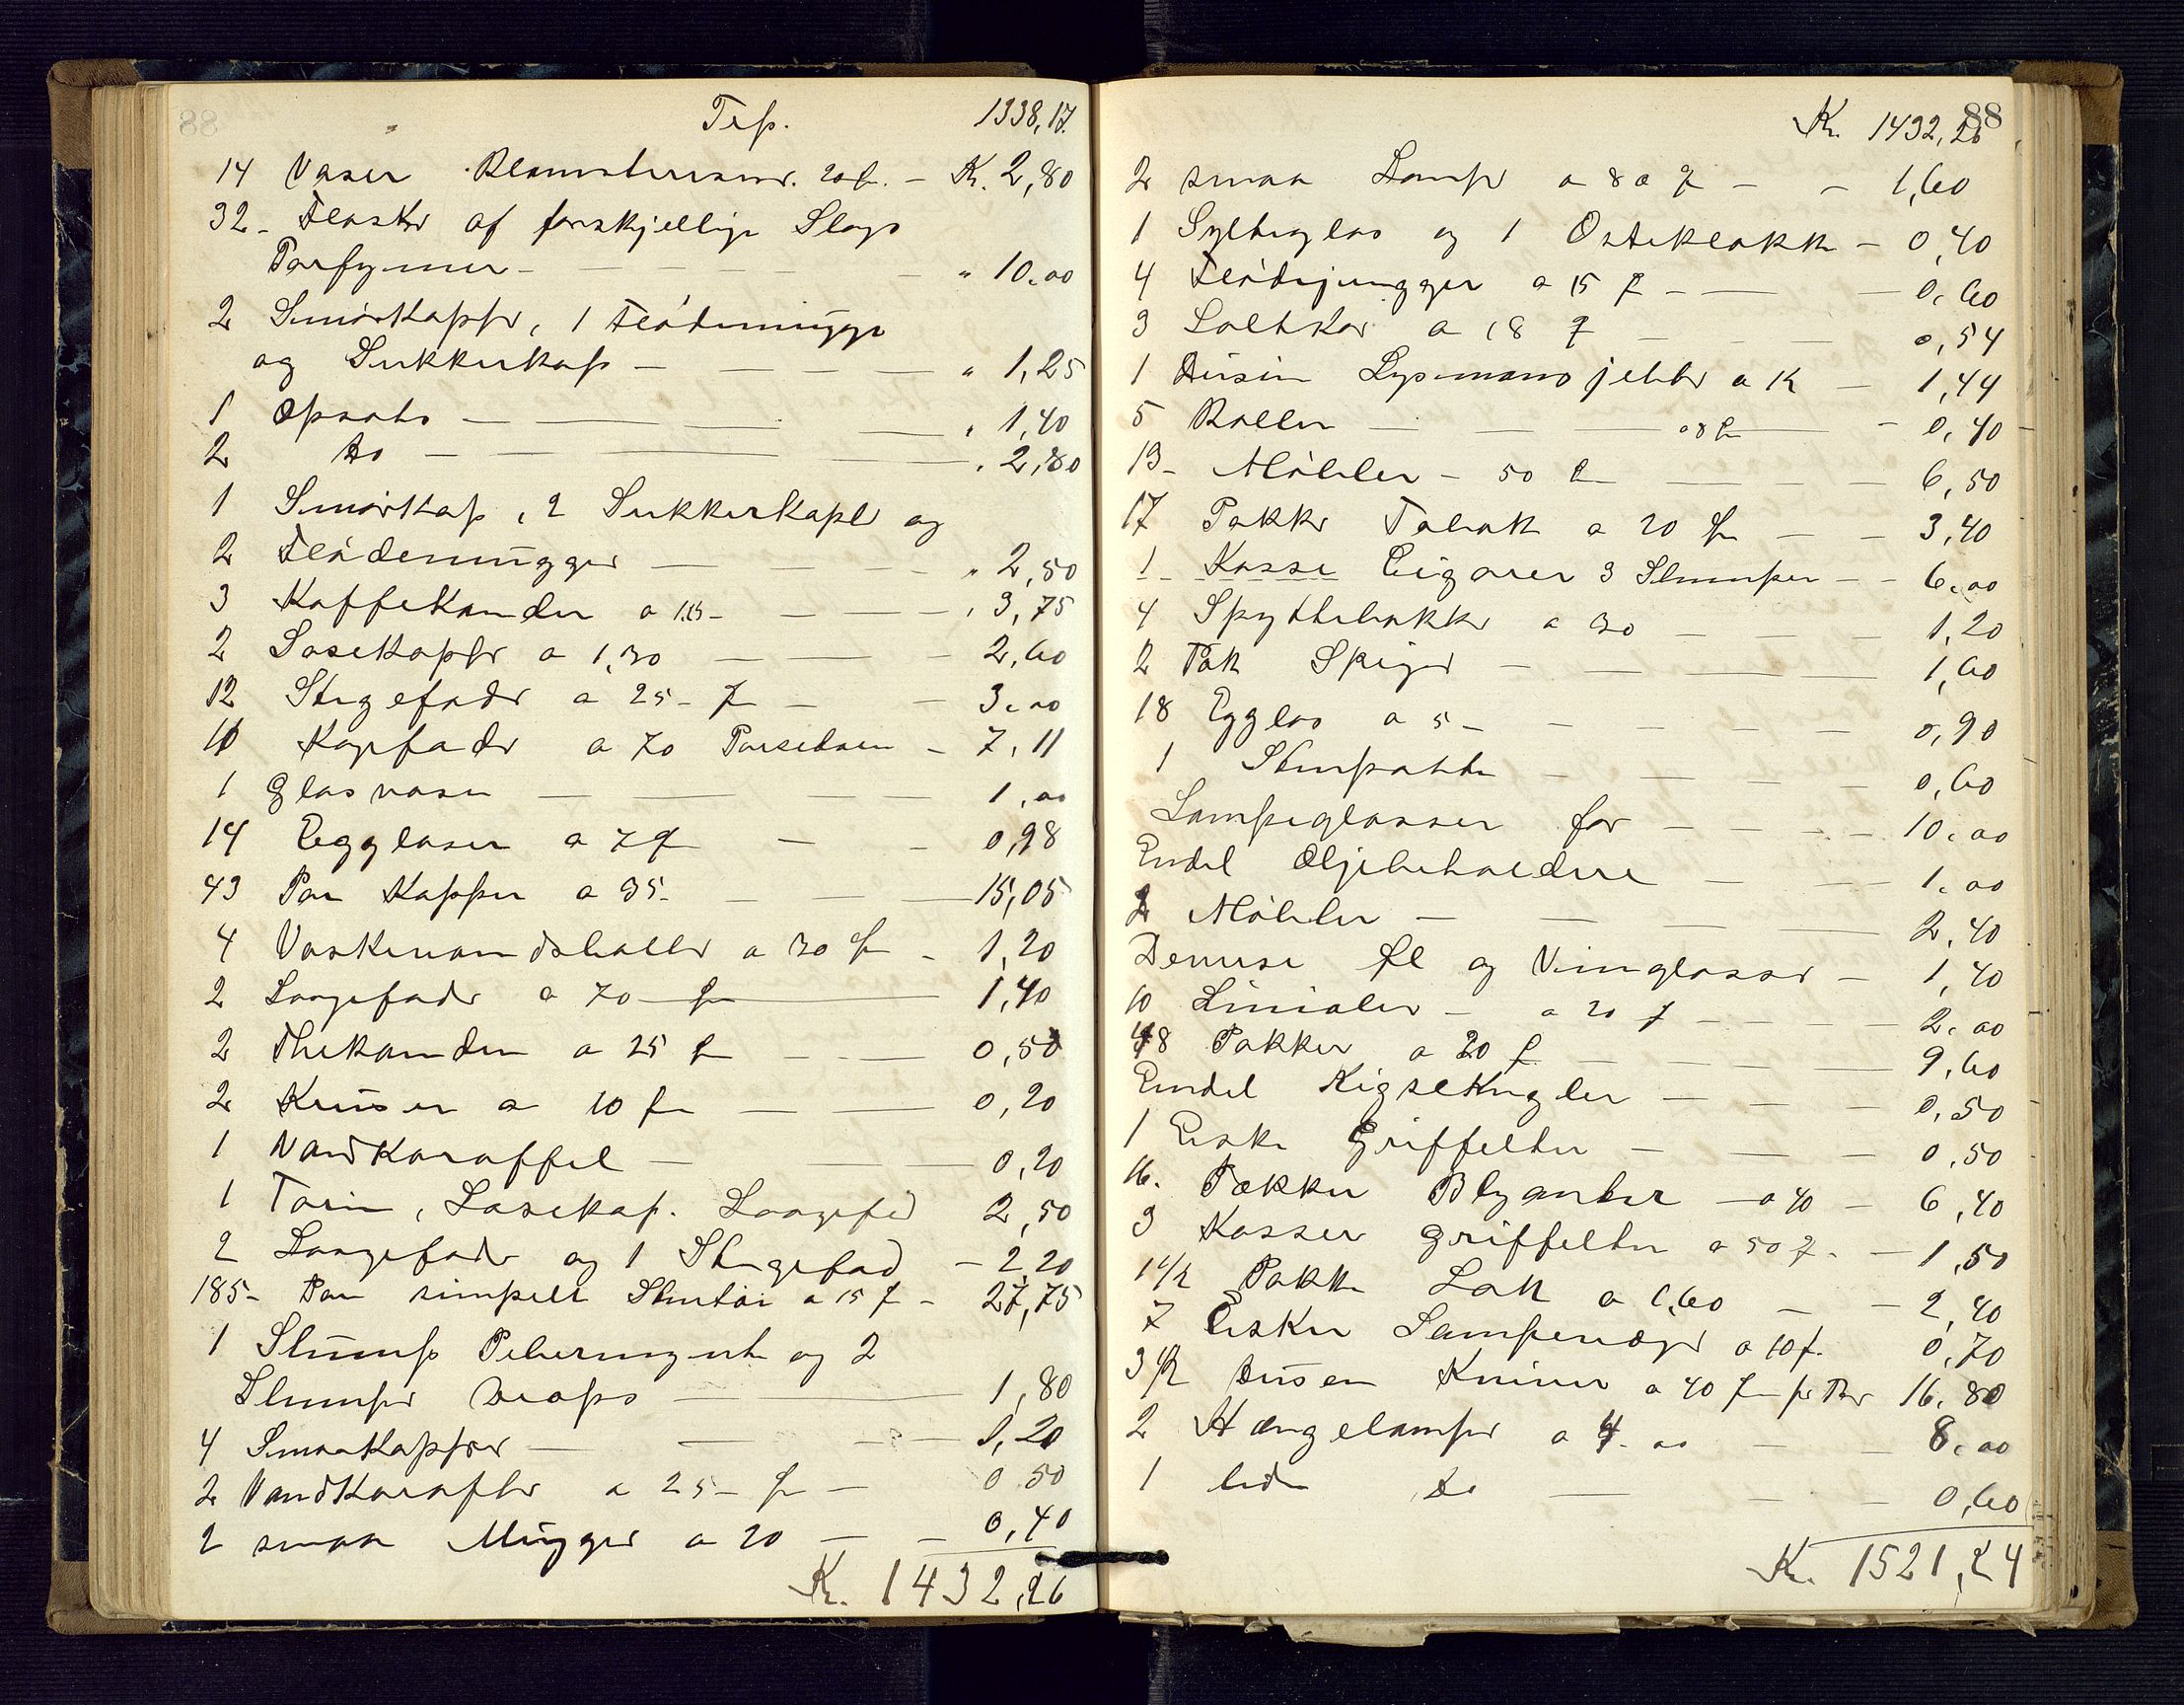 Trp. 1338,17.
14 Vaser Blomsterser. 20 f. - Kr. 2,80
32 - Flasker af forskjellige Slags
Parfymer - - - - - " 10.00
2 Smörkopper, 1 Flödemugge
og Sukkerkop - - - - " 1,25
1 Opsats - - - - " 1,40
2 do - - - - " 2,80
1 Smörkop, 2 Sukkerkopper og
2 Flödemugger - - - - " 2,50
3 Kaffekander a 1.25 - - - " 3,75
2 Sosekopper a 1,30 - - - 2,60
12 Stegefade a 25 - f - - 3.00
10 Kagefade a 70 Porselaen - 7,11
1 Glasvase - - - - 1.00
14 Egglaser a 7 f - - 0,98
43 Par Kopper a 35. - - - 15,05
4 Vaskevandsballer a 30 f - 1,20
2 Laagefade a 70 f - - 1,40
2 Thekander a 25 f - - 0,50
2 Kruser a 10 f - - 0,20
1 Vandkaraffel - - - 0,20
1 Terin, Sosekop. Laagefad 2,50
2 Laagefade og 1 Stegefad - 2,20
185 - Par simpelt Stentöi a 15 f - 27,75
1 Slump Pebermynte og 2
Slumper Drops - - 1,80
4 Smaakopper - - - 1,20
2 Vandkarafler a 25 - f - 0 50
2 smaa Mugger a 20 - - 0,40
Kr. 1432,26
88
Kr. 1432,26
2 smaa Lamper a 80 f - - 1,60
1 Sylteglas og 1 Osteklokke - 0,40
4 Flödejungger a 15 f - - - 0,60
3 Saltkar a 18 f - - - 0,54
1 Dusin Lysmansjetter a 12 - 1,44
5 Boller - - - a 8 f - - 0,40
13 - Möbler - 50 f - - - 6,50
17 Pakker Tobak a 20 f - - 3,40
1 Kasse Cigarer 3 Slumper - - 6.00
4 Spyttebakker a 30 - - - 1,20
2 Pak Spiger - - - - 1,60
18 Egglas a 5 - - - - 0,90
1 Stenpotte - - - - 0,60
Lampeglasser for - - - - 10.00
Endel Oljebeholdere - - - 1.00
2 Möbler - - - - 2,40
Deruse Öl og Vinglasser - 1,40
10 Linialer - a 20 f - - - 2.00
48 Pakker a 20 f - - - 9,60
Endel Kigsekugler - - - 0,50
1 Eske Griffelter - - - 0,50
16. Pakker Blyanter - a 40 - 6,40
3 Kasser Griffelter a 50 f. - 1,50
1 1/2 Pakke Lak a 1,60 - - 2,40
7 Esker Lampevæger a 10 f. 0,70
3 1/2 Dusen Kniver a 40 f pr Par 16.80
2 Hængelamper a 4.00 - - 8.00
1 lide do - - - 0,60
Kr. 1521,24